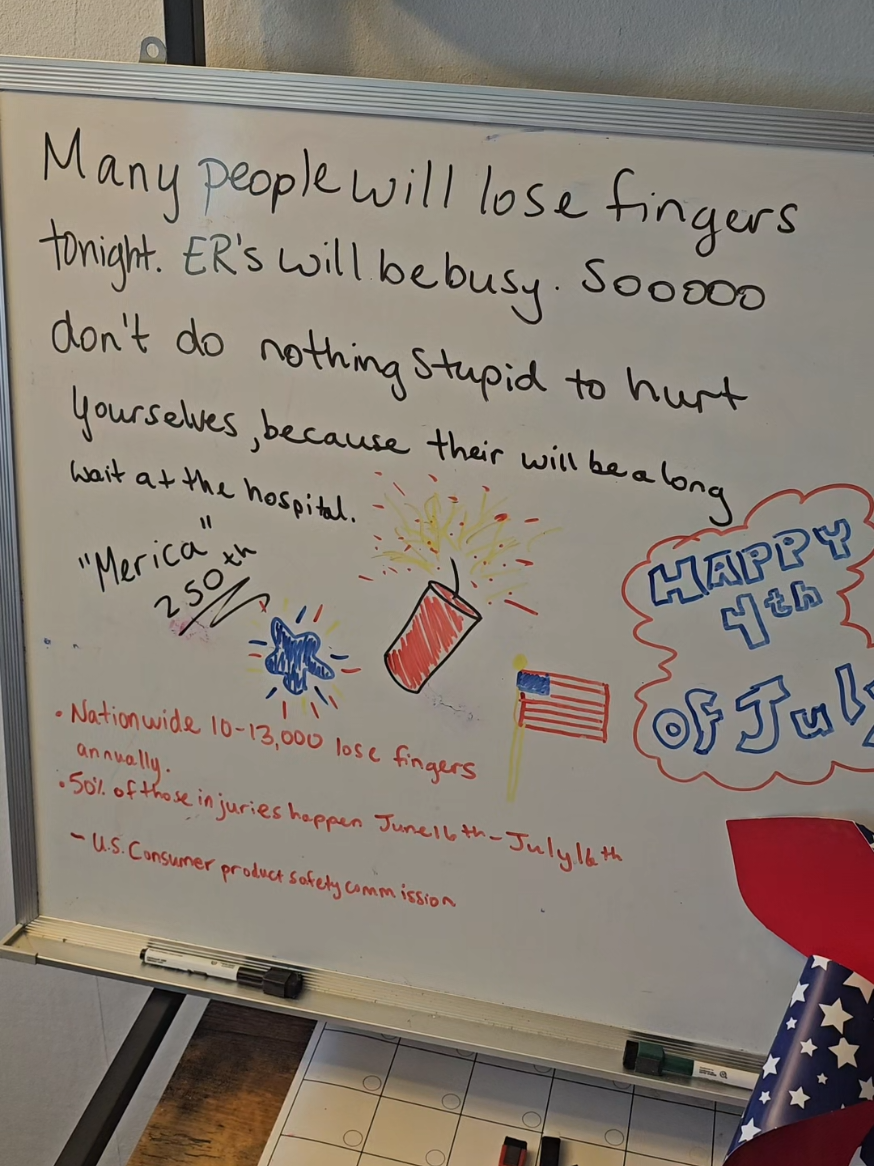 Many people will lose fingers
tonight. ER's will be busy. Sooooo
don't do nothing stupid to hurt
yourselves, because their will be a long
wait at the hospital.
"Merica"
250th
HAPPY
4th
of July
• Nationwide 10-13,000 lose fingers
annually.
• 50% of those injuries happen June 16th - July 16th
- U.S. Consumer product safety commission